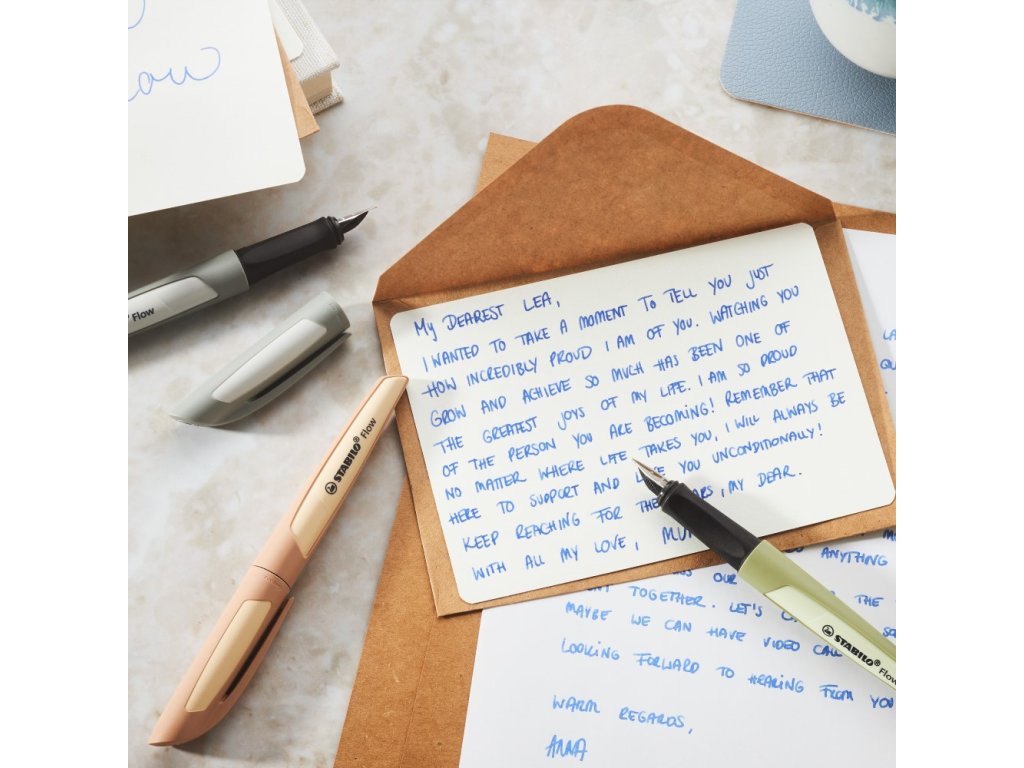 ow
Flow
STABILO® Flow
My DEAREST LEA,
I WANTED TO TAKE A MOMENT TO TELL YOU JUST
HOW INCREDIBLY PROUD I AM OF YOU. WATCHING YOU
GROW AND ACHIEVE SO MUCH HAS BEEN ONE OF
THE GREATEST JOYS OF MY LIFE. I AM SO PROUD
OF THE PERSON YOU ARE BECOMING! REMEMBER THAT
NO MATTER WHERE LIFE TAKES YOU, I WILL ALWAYS BE
HERE TO SUPPORT AND YOU UNCONDITIONALLY!
KEEP REACHING FOR , MY DEAR.
WITH ALL MY LOVE,
LA
QU
ANYTHING
OUR THE
TOGETHER. LET'S SO
MAYBE WE CAN HAVE VIDEO
LOOKING FORWARD TO HEARING FROM YOU
WARM REGARDS,
ANNA
STABILO® Flow